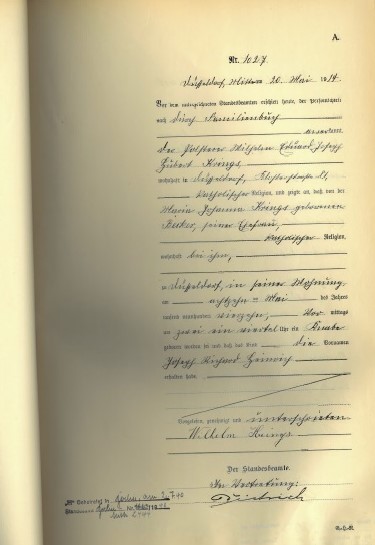 A.
Nr. 1027
Düsseldorf, am 20. Mai 1914.
Vor dem unterzeichneten Standesbeamten erschien heute, der Persönlichkeit
nach durch Familienbuch
anerkannt,
Der Polsterer Wilhelm Eduard Joseph
Hubert Krings
wohnhaft in Düsseldorf,
katholischer Religion, und zeigte an, daß von der
Maria Johanna Krings geborenen
seiner Ehefrau,
katholischer Religion,
wohnhaft bei ihm,
zu Düsseldorf, in seiner Wohnung
am achtzehn ten Mai des Jahres
tausend neunhundert vierzehn, Vor mittags
um zwei ein viertel Uhr ein Knabe
geboren worden sei und daß das Kind die Vornamen
Joseph Richard Heinrich
erhalten habe.
Vorgelesen, genehmigt und unterschrieben
Wilhelm Krings
Der Standesbeamte.
In Vertretung:
Dietrich